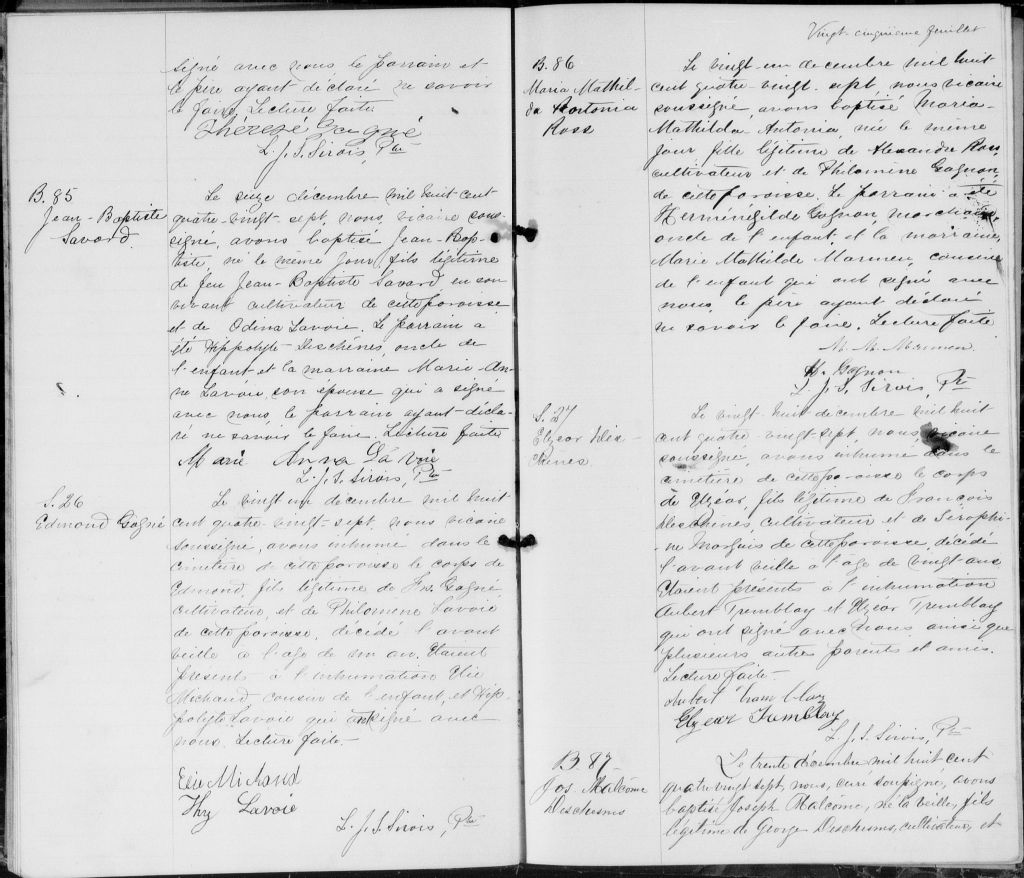 signé avec nous le parrain et
le père ayant déclaré ne savoir
le faire. Lecture faite
Thérèse Gagné
L. J. S. Sirois, Ptre
B. 85
Jean-Baptiste
Savard.
Le seize décembre mil huit cent
quatre-vingt-sept, nous, vicaire sous-
signé, avons baptisé Jean-Bap-
tiste, né le même jour, fils légitime
de feu Jean-Baptiste Savard, en son
vivant cultivateur de cette paroisse
et de Odina Lavoie. Le parrain a
été Hippolyte Deschènes, oncle de
l'enfant et la marraine Marie-An-
na Lavoie son épouse qui a signé
avec nous, le parrain ayant décla-
ré ne savoir le faire. Lecture faite
Marie Anna La voie
L. J. S. Sirois, Ptre
S. 26
Edmond Gagné
Le vingt un décembre mil huit
cent quatre-vingt-sept, nous vicaire
soussigné, avons inhumé dans le
cimetière de cette paroisse le corps de
Edmond, fils légitime de Frs. Gagné,
cultivateur, et de Philomène Lavoie
de cette paroisse, décédé l'avant
veille à l'age de un an. Etaient
présents à l'inhumation Elie
Michaud cousin de l'enfant, et Hip-
polyte Lavoie qui ont signé avec
nous. Lecture faite.-
Elie Michaud
Lavoie
L. J. S. Sirois, Ptre
Vingt-cinquième feuillet
B. 86
Maria Mathil-
da Antonia
Ross
Le vingt-un décembre mil huit
cent quatre-vingt-sept, nous vicaire
soussigné, avons baptisé Maria-
Mathilda Antonia, née le même
jour fille légitime de Alexandre Ross,
cultivateur et de Philomène Gagnon,
de cette paroisse. Le parrain a été
Herménégilde Gagnon, marchand,
oncle de l'enfant, et la marraine,
Marie Mathilde Marmen, cousine
de l'enfant qui ont signé avec
nous, le père ayant déclaré
ne savoir le faire. Lecture faite
M. M. Marmen.
H. Gagnon
L. J. S. Sirois, Ptre
S. 27
Elzear Des-
chènes.
Le vingt-huit décembre mil huit
cent quatre-vingt-sept, nous, vicaire
soussigné, avons inhumé dans le
cimetière de cette paroisse le corps
de Elzéar, fils légitime de François
Deschènes, cultivateur et de Séraphi-
-ne Marquis de cette paroisse, décédé
l'avant veille à l'age de vingt ans
Etaient présents à l'inhumation
Aubert Tremblay et Elzear Tremblay
qui ont signé avec nous ainsi que
plusieurs autres parents et amis.
Lecture faite-
Aubert Tramblay
Elzear Tramblay
L. J. S. Sirois, Ptre
B 87
Jos. Malcôme
Deschesnes
Le trente décembre mil huit cent
quatre vingt sept, nous, curé soussigné, avons
baptisé Joseph Malcôme, né la veille, fils
légitime de George Deschesnes, cultivateur, et